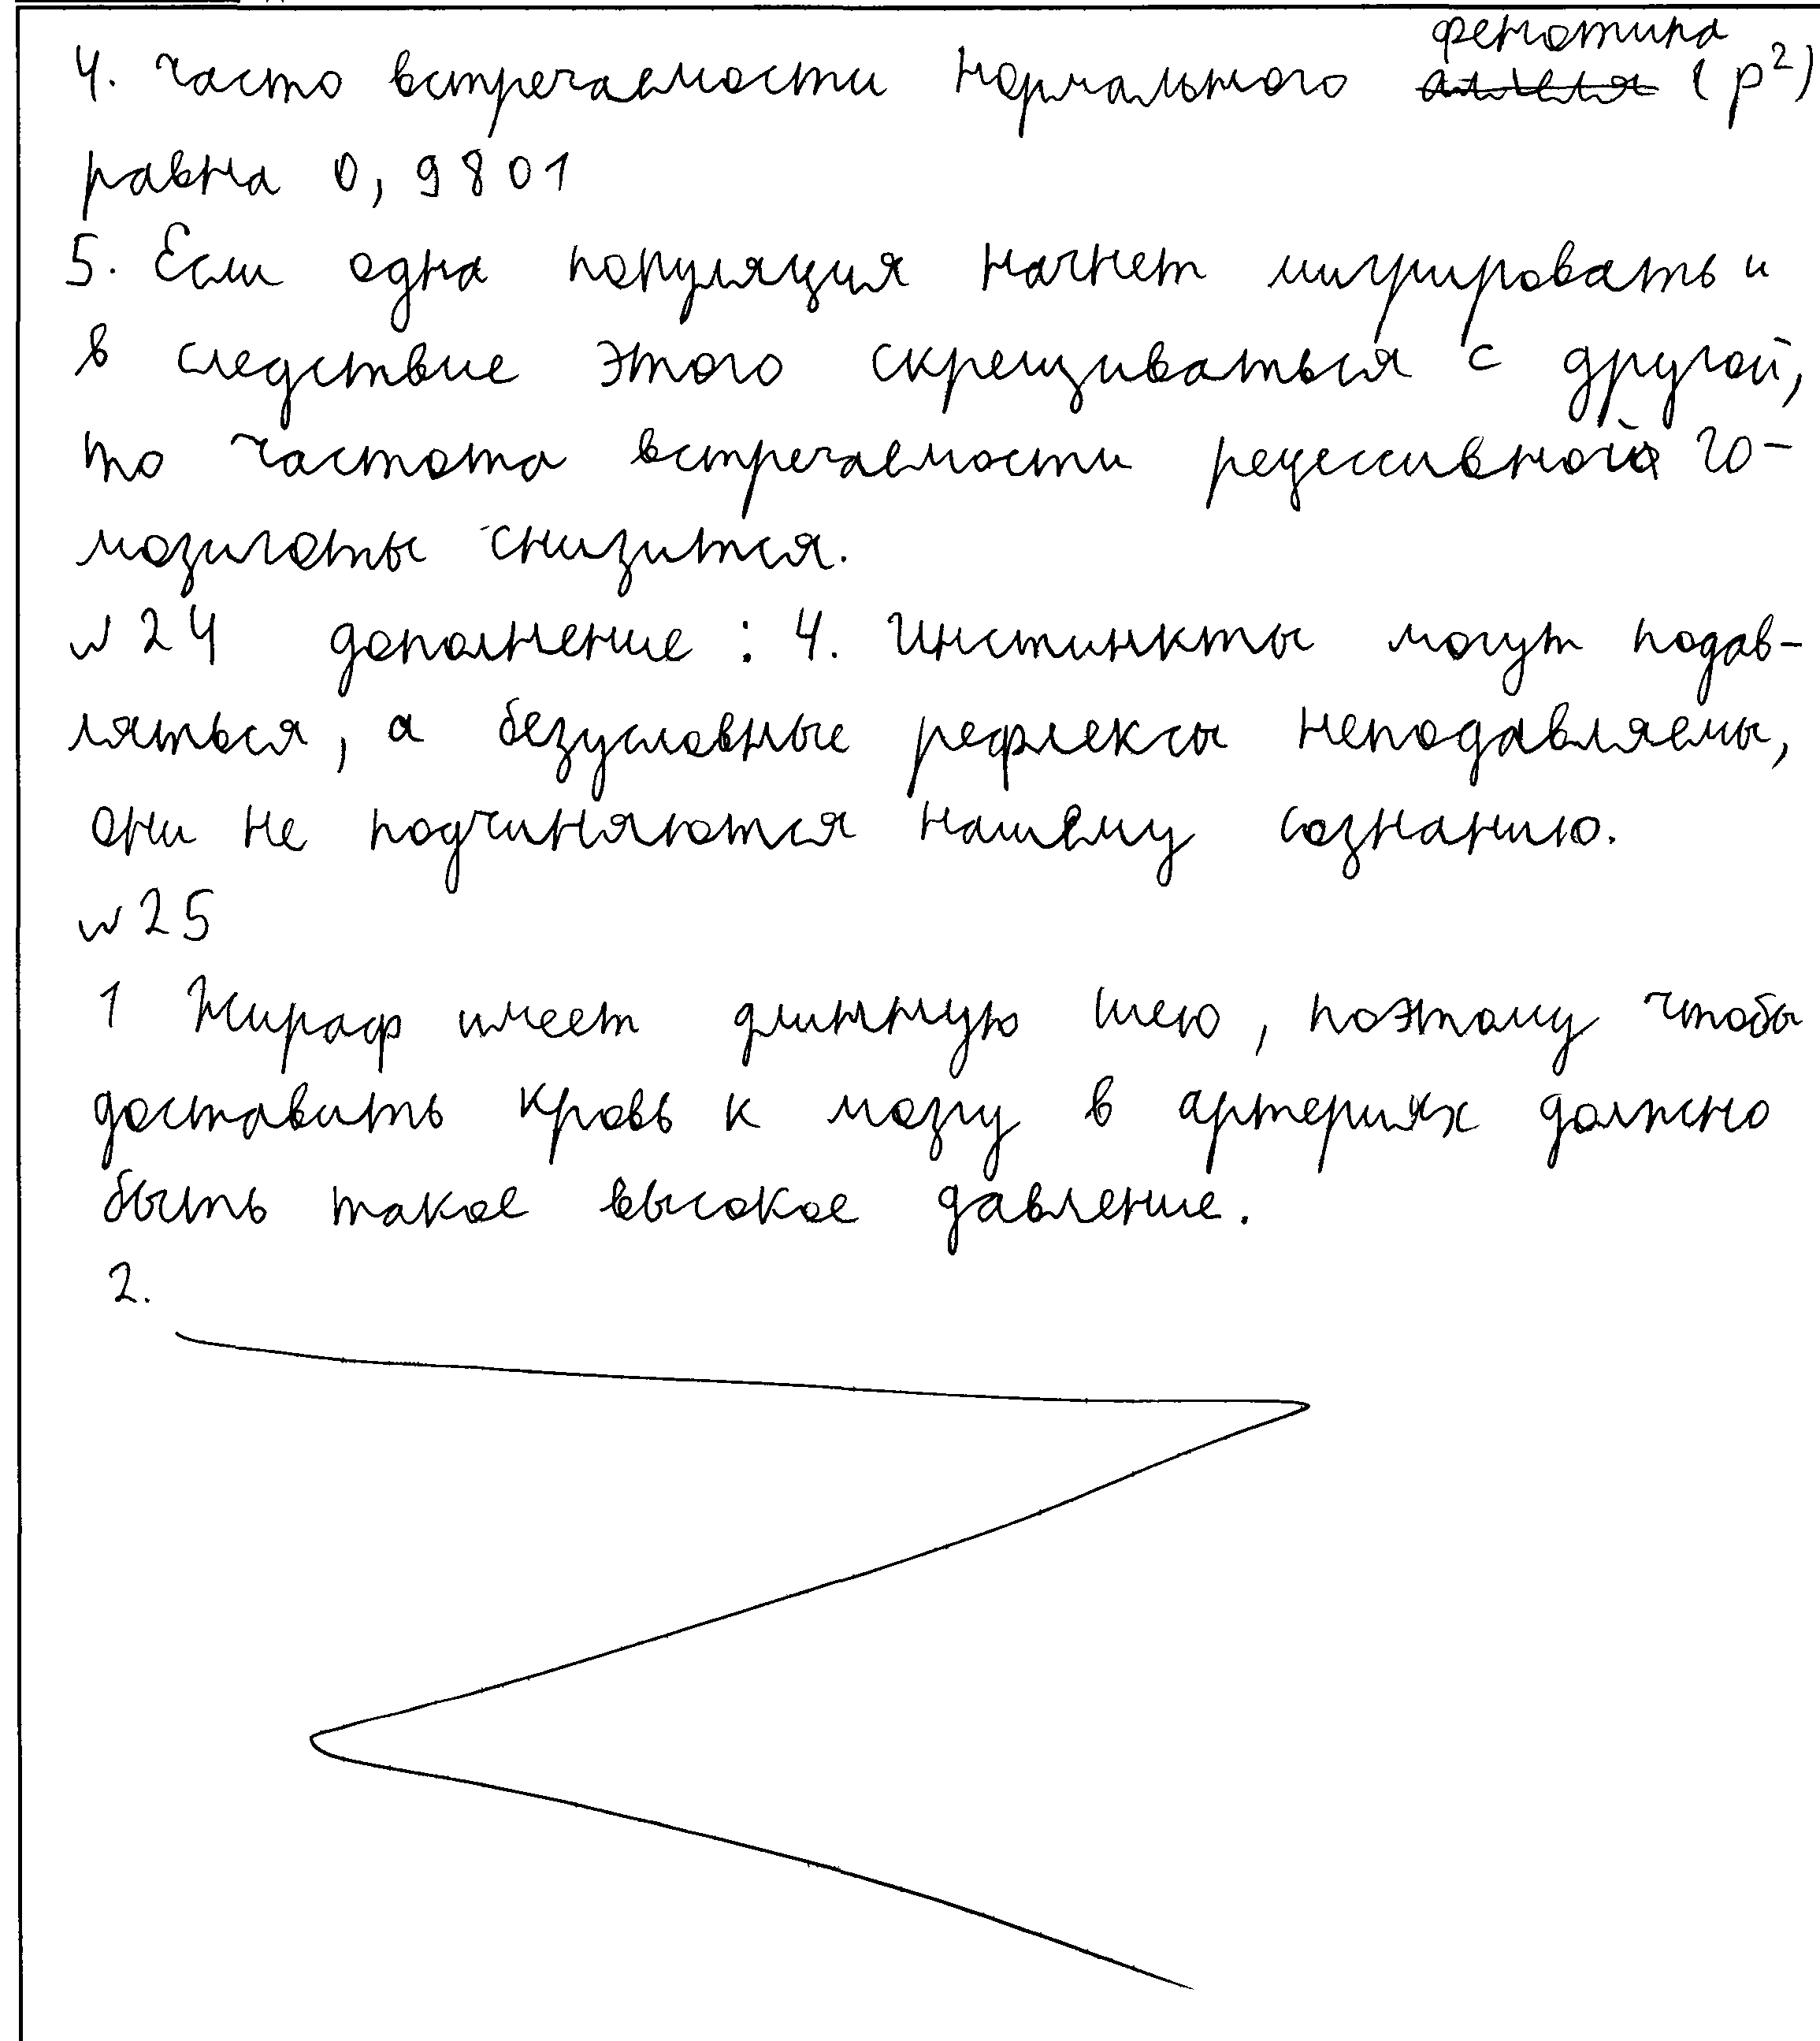 4. часто встречаемости нормального фенотипа ~~аллеля~~ (p²)
равна 0,9801
5. Если одна популяция начнет мигрировать и
в следствие этого скрещиваться с другой,
то частота встречаемости рецессивной го-
мозиготы снизится.
№24 дополнение: 4. Инстинкты могут подав-
ляться, а безусловные рефлексы неподавляемы,
они не подчиняются нашему сознанию.
№25
1 Жираф имеет длинную шею, поэтому чтобы
доставить кровь к мозгу в артериях должно
быть такое высокое давление.
2.